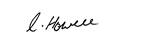 L. Howell